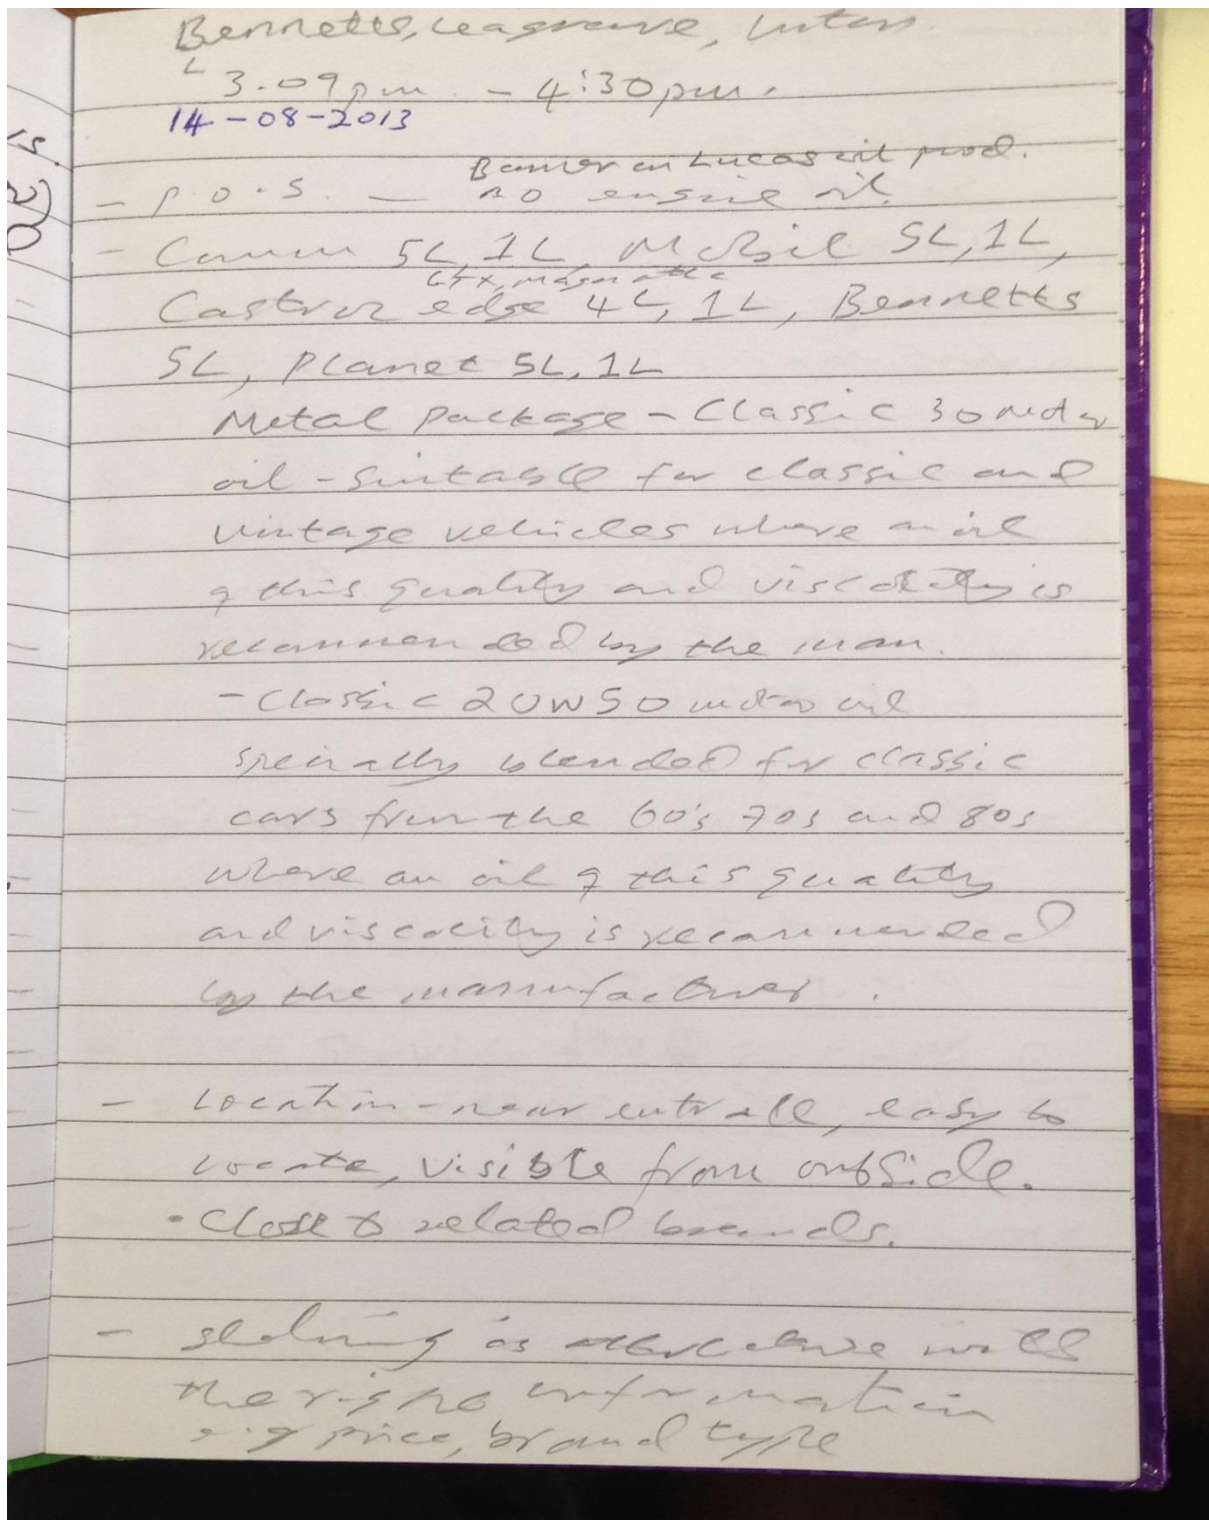 Bennetts, Leagrave, Luton.
3.09pm - 4:30pm.
14-08-2013
Banner on Lucas oil prod.
- P.O.S. - no engine oil.
- Comma 5L, 1L, Mobil 5L, 1L,
GTX, magnatec
Castrol edge 4L, 1L, Bennetts
5L, Planet 5L, 1L
Metal Package - Classic 30 motor
oil - suitable for classic and
vintage vehicles where an oil
of this quality and viscosity is
recommended by the man.
- Classic 20W50 motor oil
specially blended for classic
cars from the 60's 70s and 80s
where an oil of this quality
and viscocity is recommended
by the manufacturer.
- Location - near entrance, easy to
locate, visible from outside.
• Close to related brands.
- shelving is attractive with
the right information
e.g price, brand type